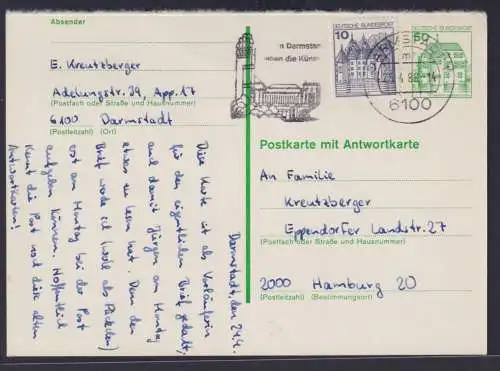 Absender
E. Kreutzberger
Adelungstr. 29, App. 17
(Postfach oder Straße und Hausnummer)
6100 Darmstadt
(Postleitzahl) (Ort)
n Darmstadt
die Künst
10
DEUTSCHE BUNDESPOST
DEUTSCHE BUNDESPOST
50
6100
Postkarte mit Antwortkarte
An Familie
Kreutzberger
Eppendorfer Landstr. 27
(Postfach oder Straße und Hausnummer)
2000 Hamburg 20
(Postleitzahl) (Bestimmungsort)
Darmstadt, den 24.4.
Diese Karte ist als Vorläuferin
für den eigentlichen Brief gedacht,
und damit Jürgen am Montag
etwas zu lesen hat. Denn den
Brief werde ich (wohl als Päckchen)
erst am Montag bei der Post
aufgeben können. Hoffentlich
kennt die Post noch diese alten
Antwortkarten!